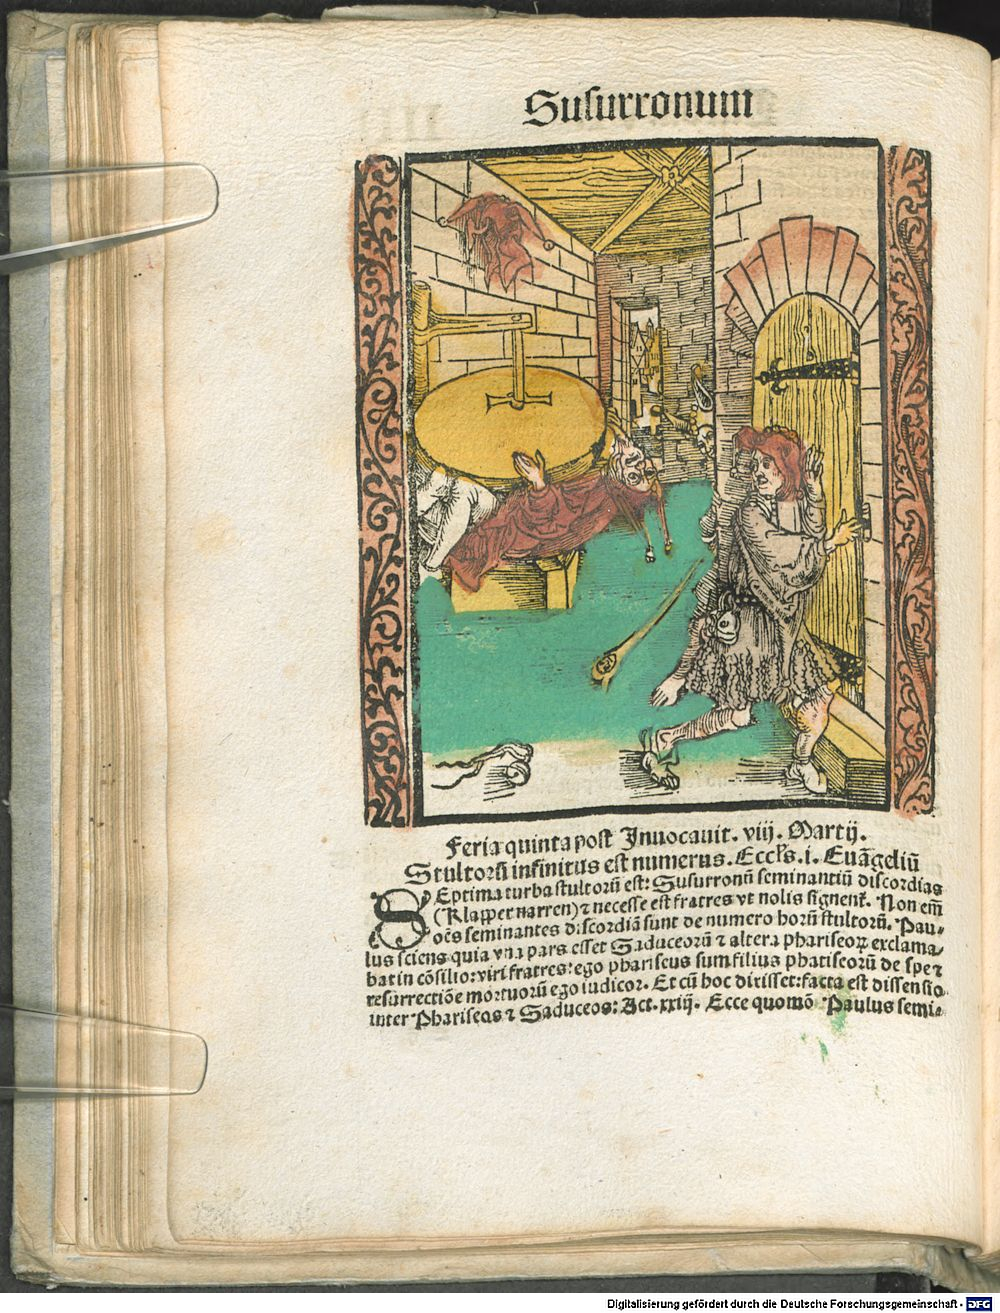 Susurronum
Feria quinta post Inuocauit. viij. Martij.
Stultorū infinitus est numerus. Eccl's. i. Euāgeliū
SEptima turba stultorū est: Susurronū seminantiū discordias
(Klapper narren) ⁊ necesse est fratres vt nolis signent᷑. Non em̄
oēs seminantes discordiā sunt de numero horū stultorū. Pau⸗
lus sciens quia vna pars esset Saduceorū ⁊ altera phariseoꝝ exclama⸗
bat in cōsilio: viri fratres: ego phariseus sum filius phariseorū de spe ⁊
resurrectiōe mortuorū ego iudicor. Et cū hoc dixisset: facta est dissensio
inter Phariseos ⁊ Saduceos: Act. xxiij. Ecce quomō Paulus semi⸗
Digitalisierung gefördert durch die Deutsche Forschungsgemeinschaft - DFG